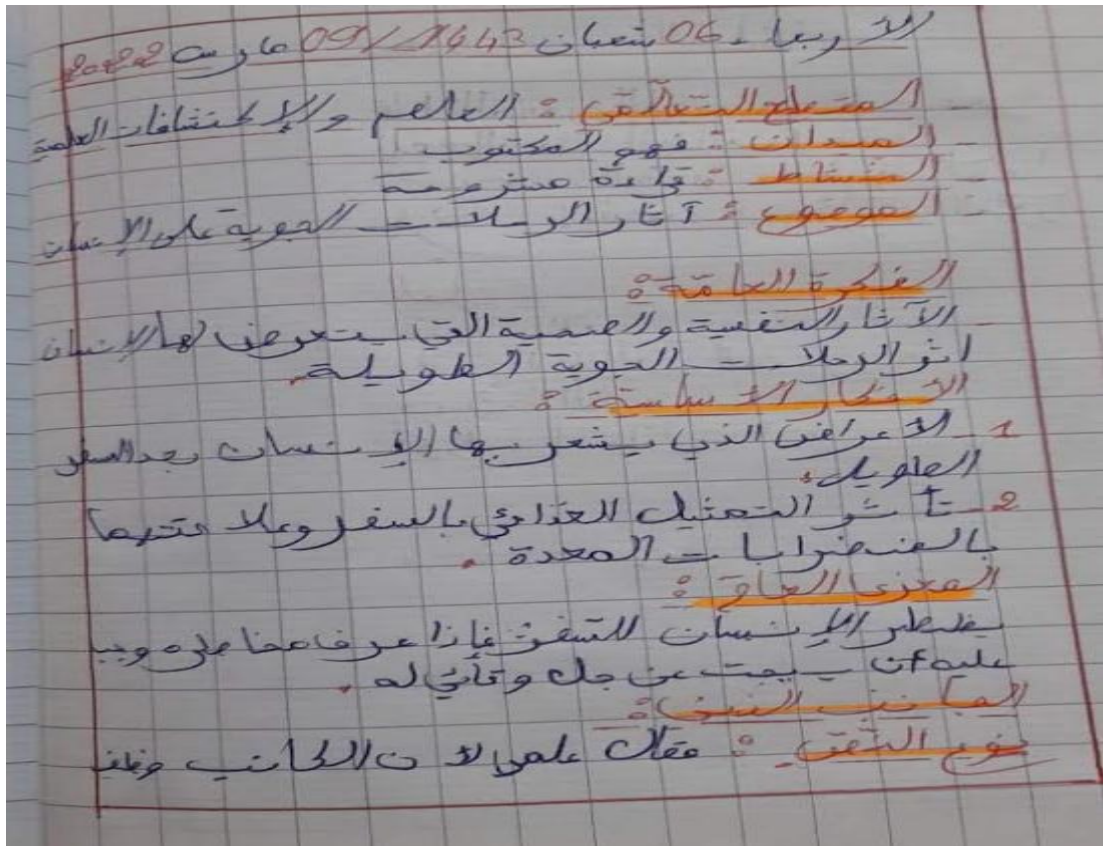 الاربعاء 06 شعبان 1443 / 09 مارس 2022
- المقطع التعلمي : العلم والإكتشافات العلمية
- الميدان : فهم المكتوب
- النشاط : قراءة مشروحة
- الموضوع : آثار الرحلات الجوية على الإنسان
الفكرة العامة :
الآثار النفسية والصحية التي يتعرض لها الإنسان
أثر الرحلات الجوية الطويلة.
الأفكار الأساسية :
1 - الاعراض الذي يشعر بها الإنسان بعد السفر
الطويل.
2 - تأثر التمثيل الغذائي بالسفر وعلاقتهما
باضطرابات المعدة .
المغزى العام :
يضطر الإنسان للسفر فإذا عرف مخاطره وجب
عليه أن يبحث عن حل وقائي له .
الجانب الفني :
نوع النص : مقال علمي لان الكاتب وظف